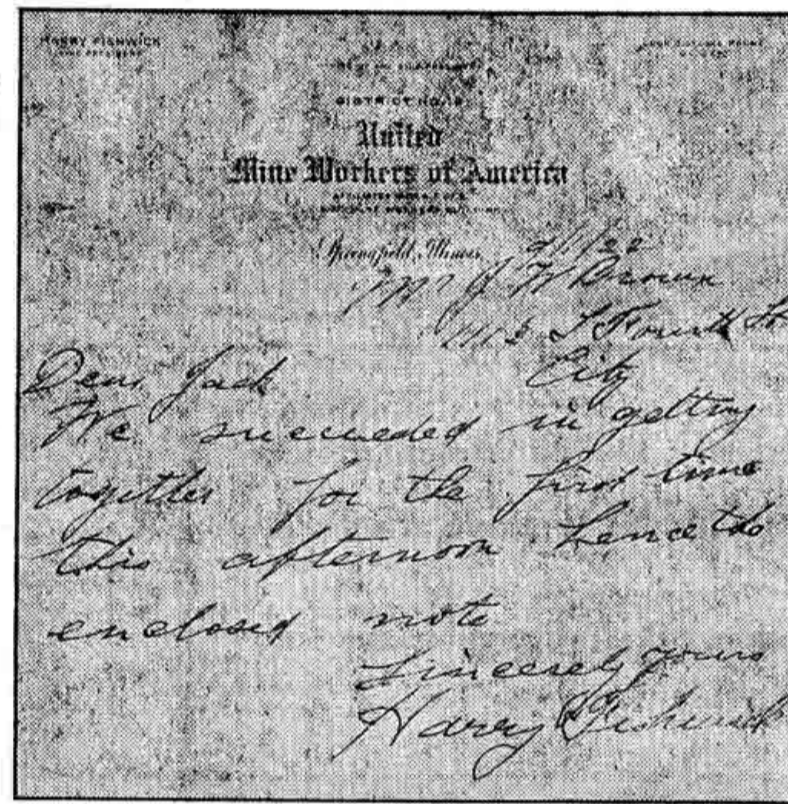 HARRY FISHWICK
VICE PRESIDENT
DISTRICT NO. 12
United
Mine Workers of America
Springfield, Illinois
Mr J W Brown
S Fourth St
City
Dear Jack
We succeeded in getting
together for the first time
this afternoon hence the
enclosed note
Sincerely yours
Harry Fishwick